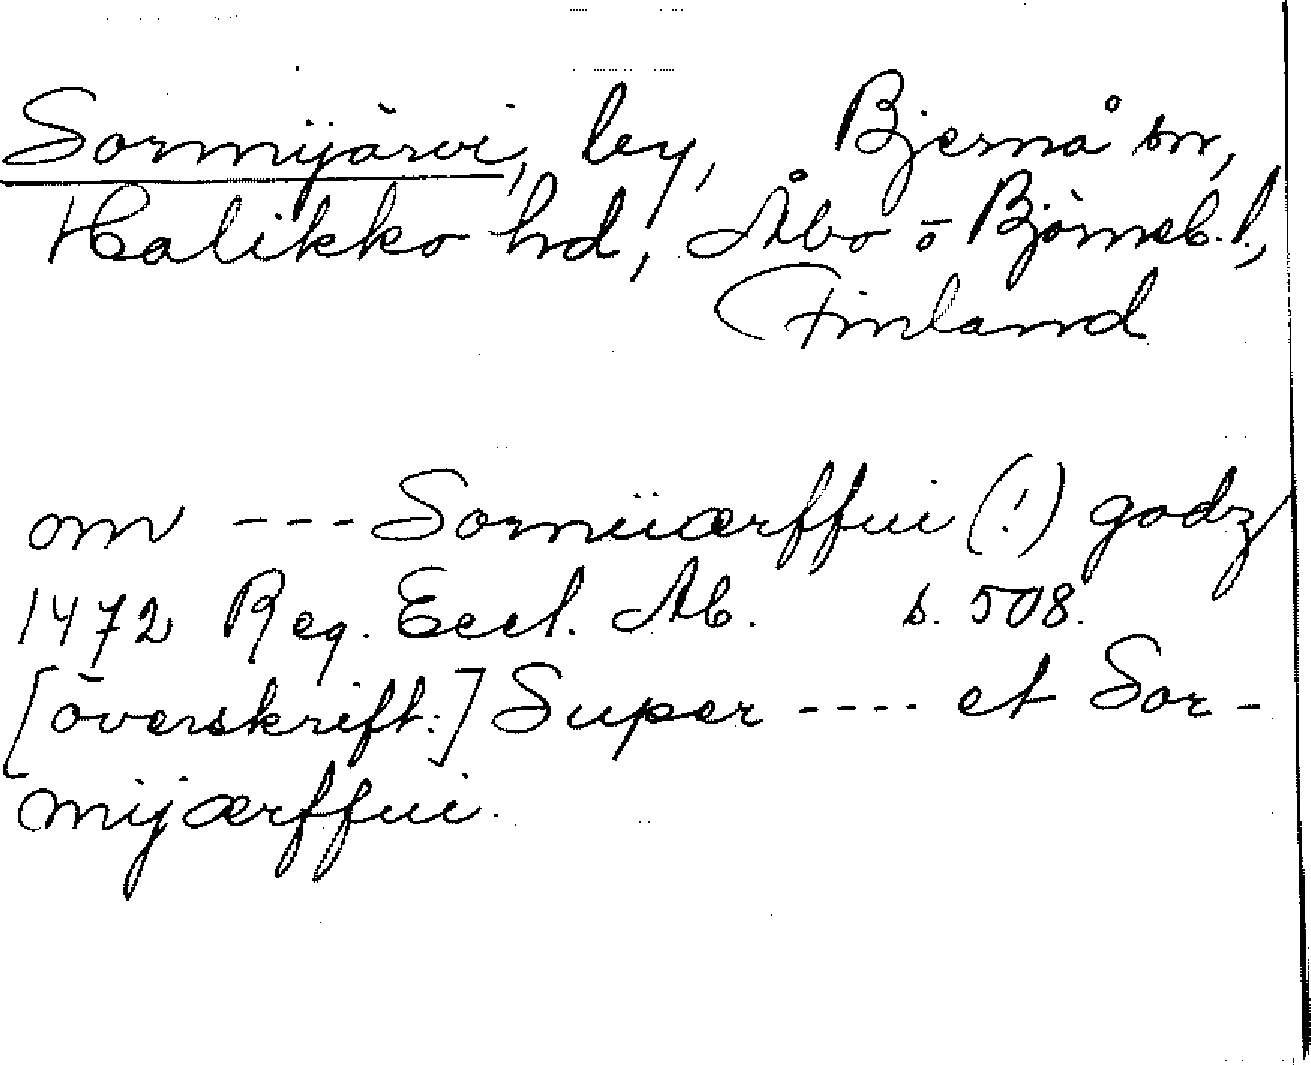 Sormijärvi, by, Bjernå sn,
Halikko hd, Åbo o Björneb. l.,
Finland
om --- Sorniiærffui (!) godz
1472 Reg. Eccl. Ab. s. 508.
[överskrift:] Super ---- et Sor-
mijærffui.